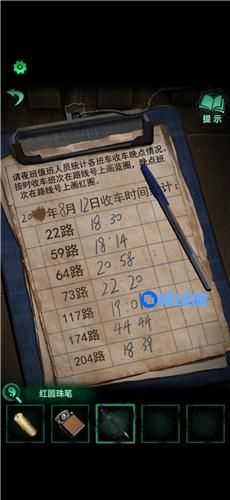 提示
请夜班值班人员统计各班车收车晚点情况，
按时收车班次在路线号上画蓝圈，晚点班
次在路线号上画红圈。
年8月12日收车时间统计：
22路 18 30
59路 18·14
64路 20 58
73路 22 20
117路 19 0
174路 44 44
204路 18 39
红圆珠笔